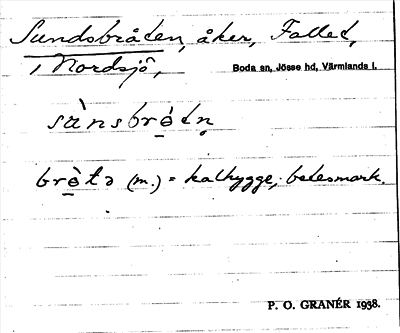 Sundsbråten, åker, Fallet,
i Nordsjö, Boda sn, Jösse hd, Värmlands l.
sànsbrǝ̀tn̥
brǝ̀tǝ (m.) = kalhygge; betesmark.
P. O. GRANÉR 1938.